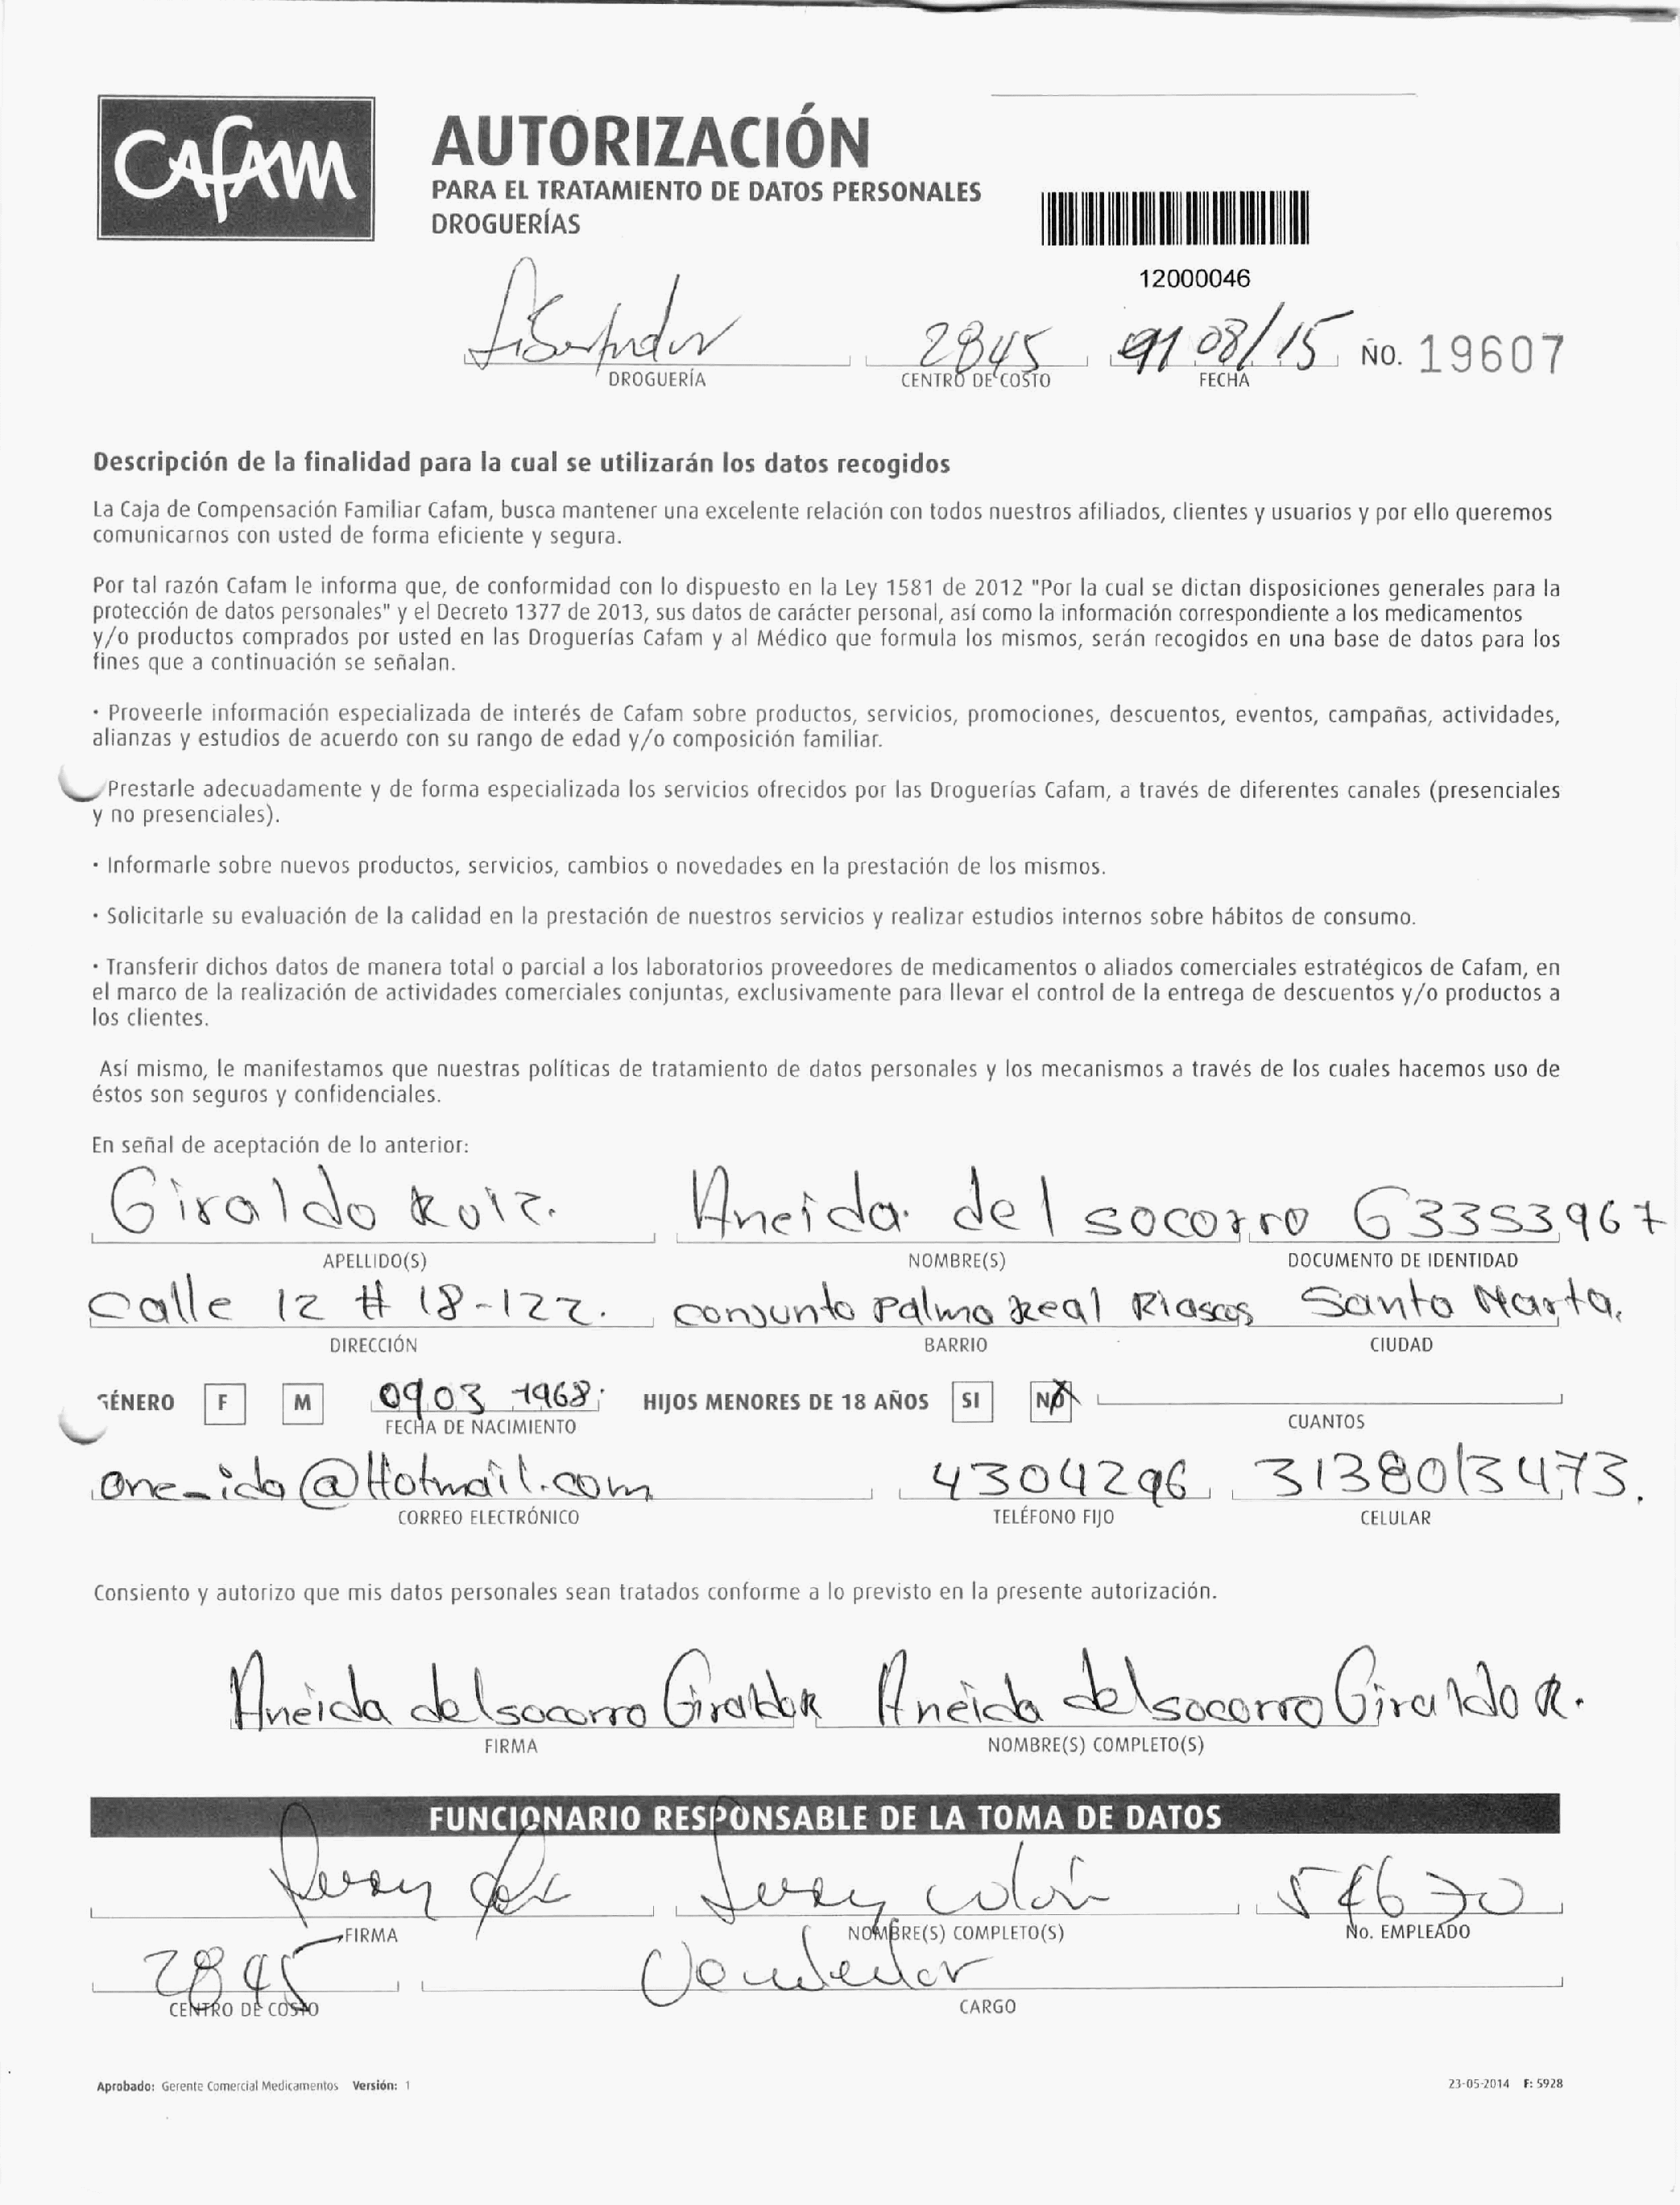 CAFAM
AUTORIZACIÓN
PARA EL TRATAMIENTO DE DATOS PERSONALES
DROGUERÍAS
12000046
2845 08/15 No. 19607
DROGUERÍA CENTRO DE COSTO FECHA
Descripción de la finalidad para la cual se utilizarán los datos recogidos
La Caja de Compensación Familiar Cafam, busca mantener una excelente relación con todos nuestros afiliados, clientes y usuarios y por ello queremos
comunicarnos con usted de forma eficiente y segura.
Por tal razón Cafam le informa que, de conformidad con lo dispuesto en la Ley 1581 de 2012 "Por la cual se dictan disposiciones generales para la
protección de datos personales" y el Decreto 1377 de 2013, sus datos de carácter personal, así como la información correspondiente a los medicamentos
y/o productos comprados por usted en las Droguerías Cafam y al Médico que formula los mismos, serán recogidos en una base de datos para los
fines que a continuación se señalan.
· Proveerle información especializada de interés de Cafam sobre productos, servicios, promociones, descuentos, eventos, campañas, actividades,
alianzas y estudios de acuerdo con su rango de edad y/o composición familiar.
Prestarle adecuadamente y de forma especializada los servicios ofrecidos por las Droguerías Cafam, a través de diferentes canales (presenciales
y no presenciales).
· Informarle sobre nuevos productos, servicios, cambios o novedades en la prestación de los mismos.
· Solicitarle su evaluación de la calidad en la prestación de nuestros servicios y realizar estudios internos sobre hábitos de consumo.
· Transferir dichos datos de manera total o parcial a los laboratorios proveedores de medicamentos o aliados comerciales estratégicos de Cafam, en
el marco de la realización de actividades comerciales conjuntas, exclusivamente para llevar el control de la entrega de descuentos y/o productos a
los clientes.
Así mismo, le manifestamos que nuestras políticas de tratamiento de datos personales y los mecanismos a través de los cuales hacemos uso de
éstos son seguros y confidenciales.
En señal de aceptación de lo anterior:
Giraldo Ruiz. Aneida del socorro 63353967
APELLIDO(S) NOMBRE(S) DOCUMENTO DE IDENTIDAD
Calle 12 # 18-122. conjunto Palma Real Riascos Santa Marta.
DIRECCIÓN BARRIO CIUDAD
GÉNERO F M 09 03 1968. HIJOS MENORES DE 18 AÑOS SI NO
FECHA DE NACIMIENTO CUANTOS
ane_ida@Hotmail.com 4304296 3138013473.
CORREO ELECTRÓNICO TELÉFONO FIJO CELULAR
Consiento y autorizo que mis datos personales sean tratados conforme a lo previsto en la presente autorización.
Aneida del socorro Giraldo R Aneida del socorro Giraldo R.
FIRMA NOMBRE(S) COMPLETO(S)
FUNCIONARIO RESPONSABLE DE LA TOMA DE DATOS
colón
FIRMA NOMBRE(S) COMPLETO(S) No. EMPLEADO
2845 Vendedor
CENTRO DE COSTO CARGO
Aprobado: Gerente Comercial Medicamentos Versión: 1 23-05-2014 F: 5928